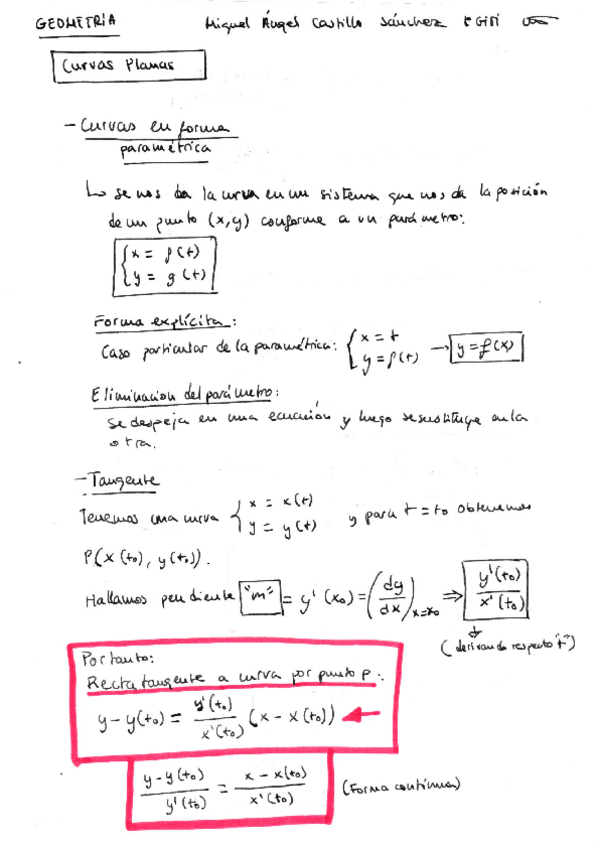 GEOMETRÍA Miguel Ángel Castillo Sánchez
Curvas Planas
- Curvas en forma
paramétrica
↳ se nos da la curva en un sistema que nos da la posición
de un punto (x,y) conforme a un parámetro:
{ x = f(t)
{ y = g(t)
Forma explícita:
Caso particular de la paramétrica: { x = t
{ y = f(t) → y = f(x)
Eliminacion del parámetro:
Se despeja en una ecuación y luego se sustituye en la
otra.
- Tangente
Tenemos una curva { x = x(t)
{ y = y(t) y para t = t₀ obtenemos
P(x(t₀), y(t₀)).
Hallamos pendiente "m" = y'(x₀) = (dy/dx)x=x₀ ⇒ y'(t₀)/x'(t₀)
(derivando respecto "t")
Por tanto:
Recta tangente a curva por punto P:
y - y(t₀) = y'(t₀)/x'(t₀) (x - x(t₀))
(y - y(t₀))/y'(t₀) = (x - x(t₀))/x'(t₀) (Forma continua)